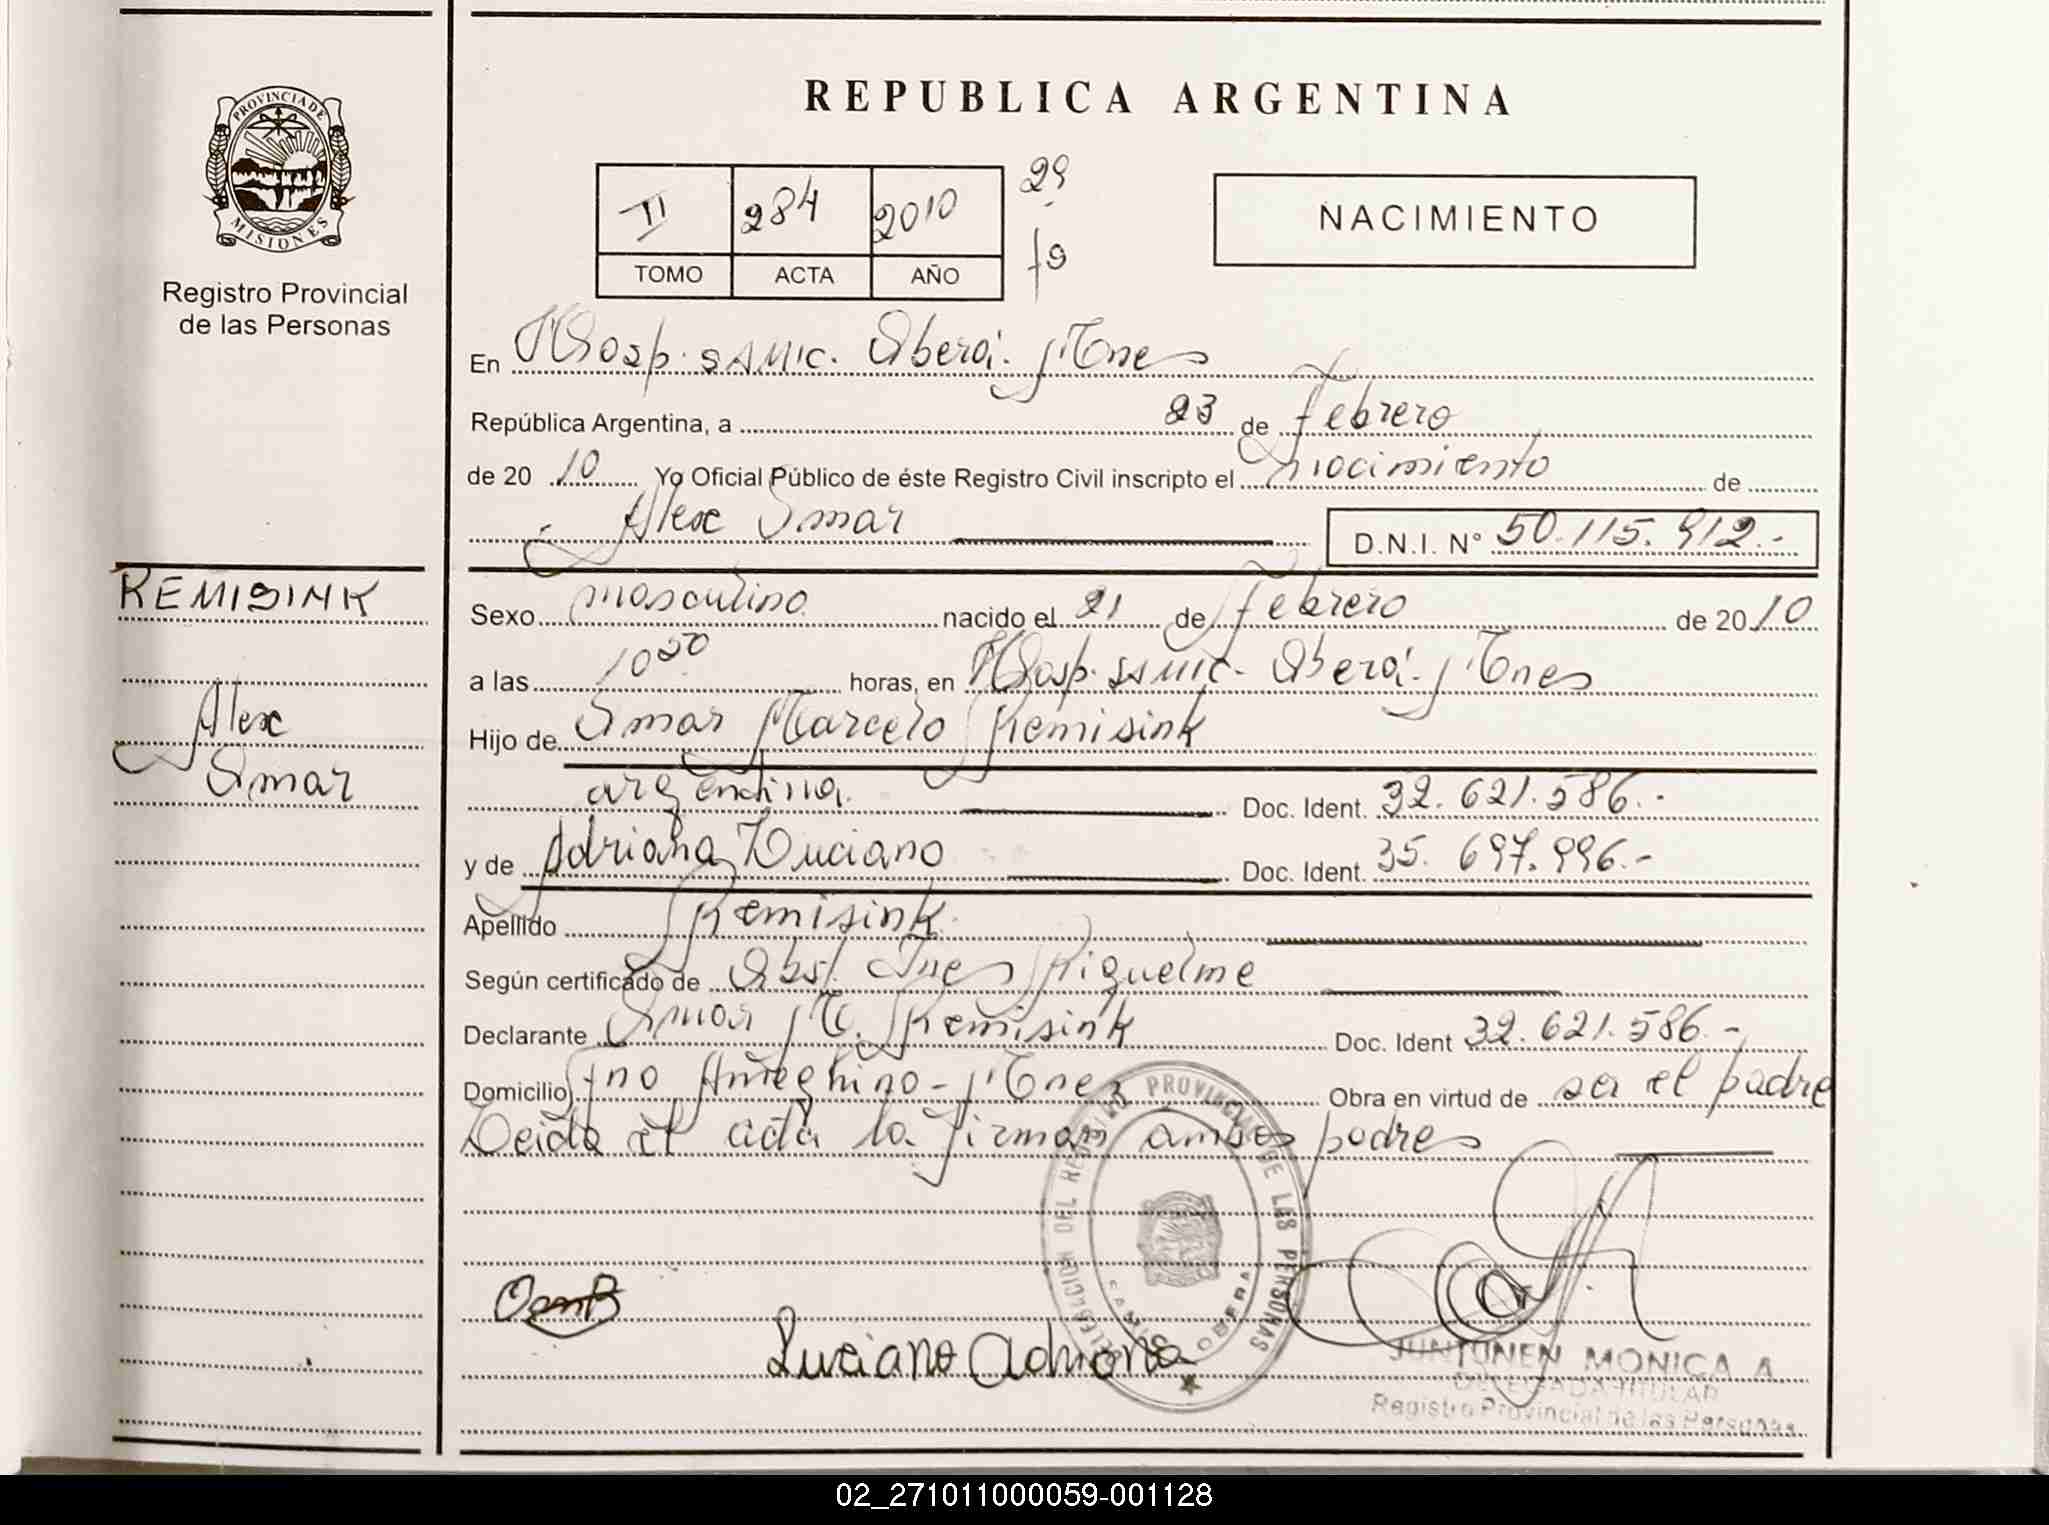 REPUBLICA ARGENTINA
PROVINCIA DE
MISIONES
Registro Provincial
de las Personas
II 284 2010 29
TOMO ACTA AÑO fº
NACIMIENTO
En Hosp. SAMIC. Oberá. Mnes
República Argentina, a 23 de Febrero
de 20 10 Yo Oficial Público de éste Registro Civil inscripto el nacimiento de
Alex Omar D.N.I. N° 50.115.912.-
REMISINK
Alex
Omar
Sexo masculino nacido el 21 de Febrero de 20 10
a las 10 horas, en Hosp. SAMIC. Oberá. Mnes
Hijo de Omar Marcelo Remisink
argentina. Doc. Ident. 32.621.586.-
y de Adriana Luciano Doc. Ident. 35.697.996.-
Apellido Remisink
Según certificado de Obst. Ines Riquelme
Declarante Omar M. Remisink Doc. Ident 32.621.586.-
Domicilio Fno Ameghino - Mnes Obra en virtud de ser el padre
Leida el acta la firman ambos padres
DEL REGISTRO PROVINCIAL DE LAS PERSONAS
OBERA
Luciano Adriana
JUNTUNEN MONICA A.
DELEGADA TITULAR
Registro Provincial de las Personas
02_271011000059-001128